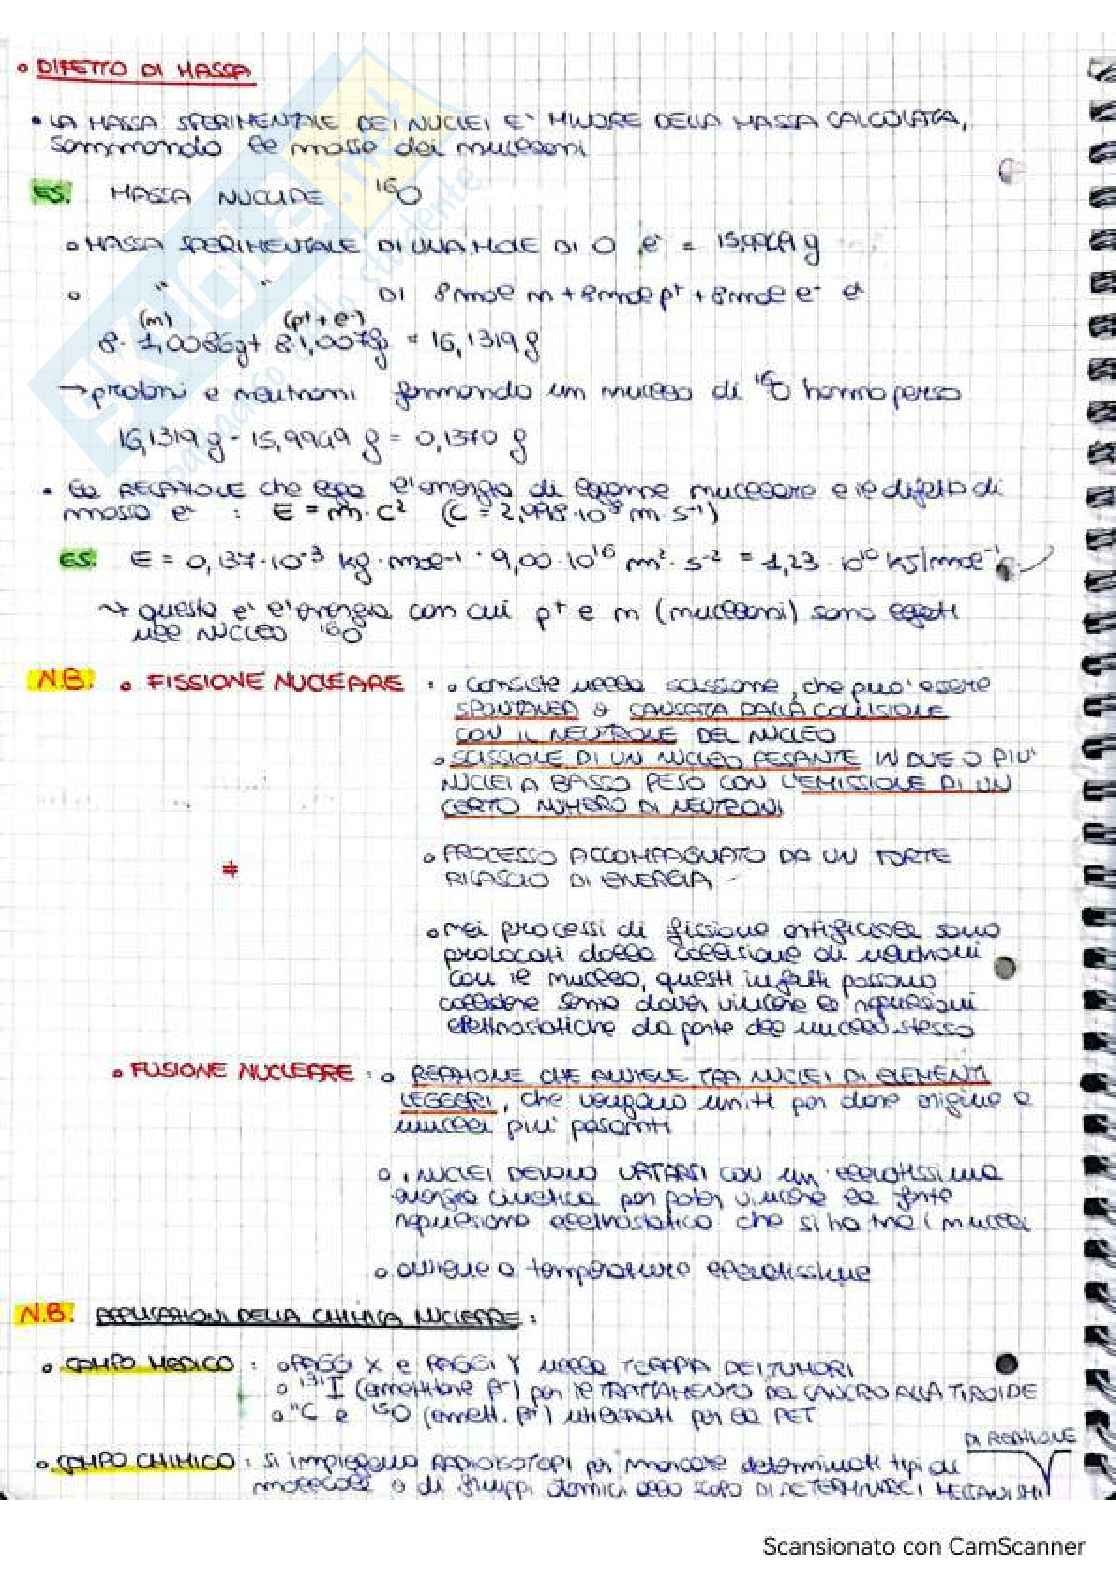 • DIFETTO DI MASSA
• LA MASSA SPERIMENTALE DEI NUCLEI E' MINORE DELLA MASSA CALCOLATA,
sommando le masse dei nucleoni
ES. MASSA NUCLIDE ¹⁶O
• MASSA SPERIMENTALE DI UNA MOLE DI O è = 15,9949 g
• " " DI 8 mol n + 8 mol p⁺ + 8 mol e⁻ è
(n) (p⁺ + e⁻)
8 · 1,0086g + 8 1,0078g = 16,1319 g
→ protoni e neutroni formando un nucleo di ¹⁶O hanno perso
16,1319 g - 15,9949 g = 0,1370 g
• la RELAZIONE che lega l'energia di legame nucleare e il difetto di
massa e' : E = m · c² (c = 2,998 · 10⁸ m · s⁻¹)
ES. E = 0,137 · 10⁻³ kg · mol⁻¹ · 9,00 · 10¹⁶ m² · s⁻² = 1,23 · 10¹⁰ kJ/mol⁻¹
→ questa e' l'energia con cui p⁺ e n (nucleoni) sono legati
nel NUCLEO ¹⁶O
N.B. • FISSIONE NUCLEARE : • consiste nella scissione, che puo' essere
SPONTANEA o CAUSATA DALLA COLLISIONE
CON IL NEUTRONE DEL NUCLEO
• SCISSIONE DI UN NUCLEO PESANTE IN DUE O PIU'
NUCLEI A BASSO PESO CON L'EMISSIONE DI UN
CERTO NUMERO DI NEUTRONI
• PROCESSO ACCOMPAGNATO DA UN FORTE
RILASCIO DI ENERGIA
≠
• nei processi di fissione artificiale sono
provocati dalla collisione di neutroni
con il nucleo, questi infatti possono
collidere senza dover vincere le repulsioni
elettrostatiche da parte del nucleo stesso
• FUSIONE NUCLEARE : • REAZIONE CHE AVVIENE TRA NUCLEI DI ELEMENTI
LEGGERI, che vengono uniti per dare origine a
nuclei piu' pesanti
• i NUCLEI DEVONO URTARSI con un elevatissima
energia cinetica per poter vincere la forte
repulsione elettrostatica che si ha tra i nuclei
• avviene a temperature elevatissime
N.B. APPLICAZIONI DELLA CHIMICA NUCLEARE :
• CAMPO MEDICO : • RAGGI X e RAGGI γ NELLA TERAPIA DEI TUMORI
• ¹³¹I (emettitore β⁻) per il TRATTAMENTO DEL CANCRO ALLA TIROIDE
• ¹¹C e ¹⁵O (emett. β⁺) per la PET
DI REAZIONE
• CAMPO CHIMICO : si impiegano RADIOISOTOPI per marcare determinati tipi di
molecole o di gruppi atomici allo SCOPO DI DETERMINARE I MECCANISMI
Scansionato con CamScanner